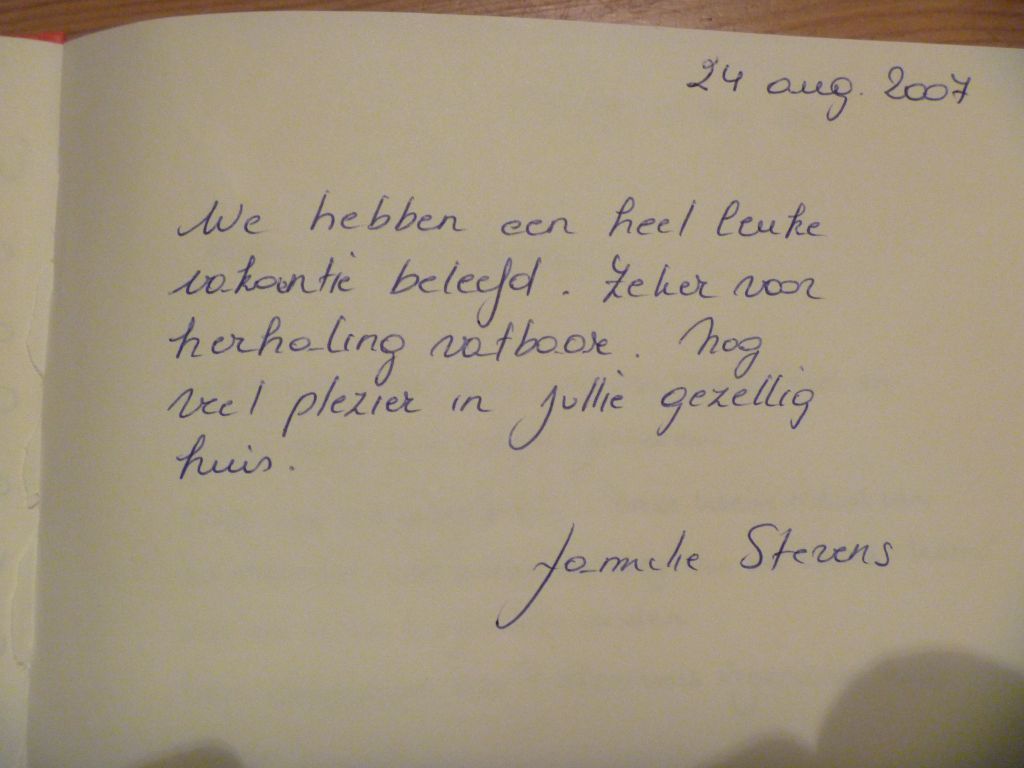 24 aug. 2007
We hebben een heel leuke
vakantie beleefd. Zeker voor
herhaling vatbaar. Nog
veel plezier in jullie gezellig
huis.
Stevens